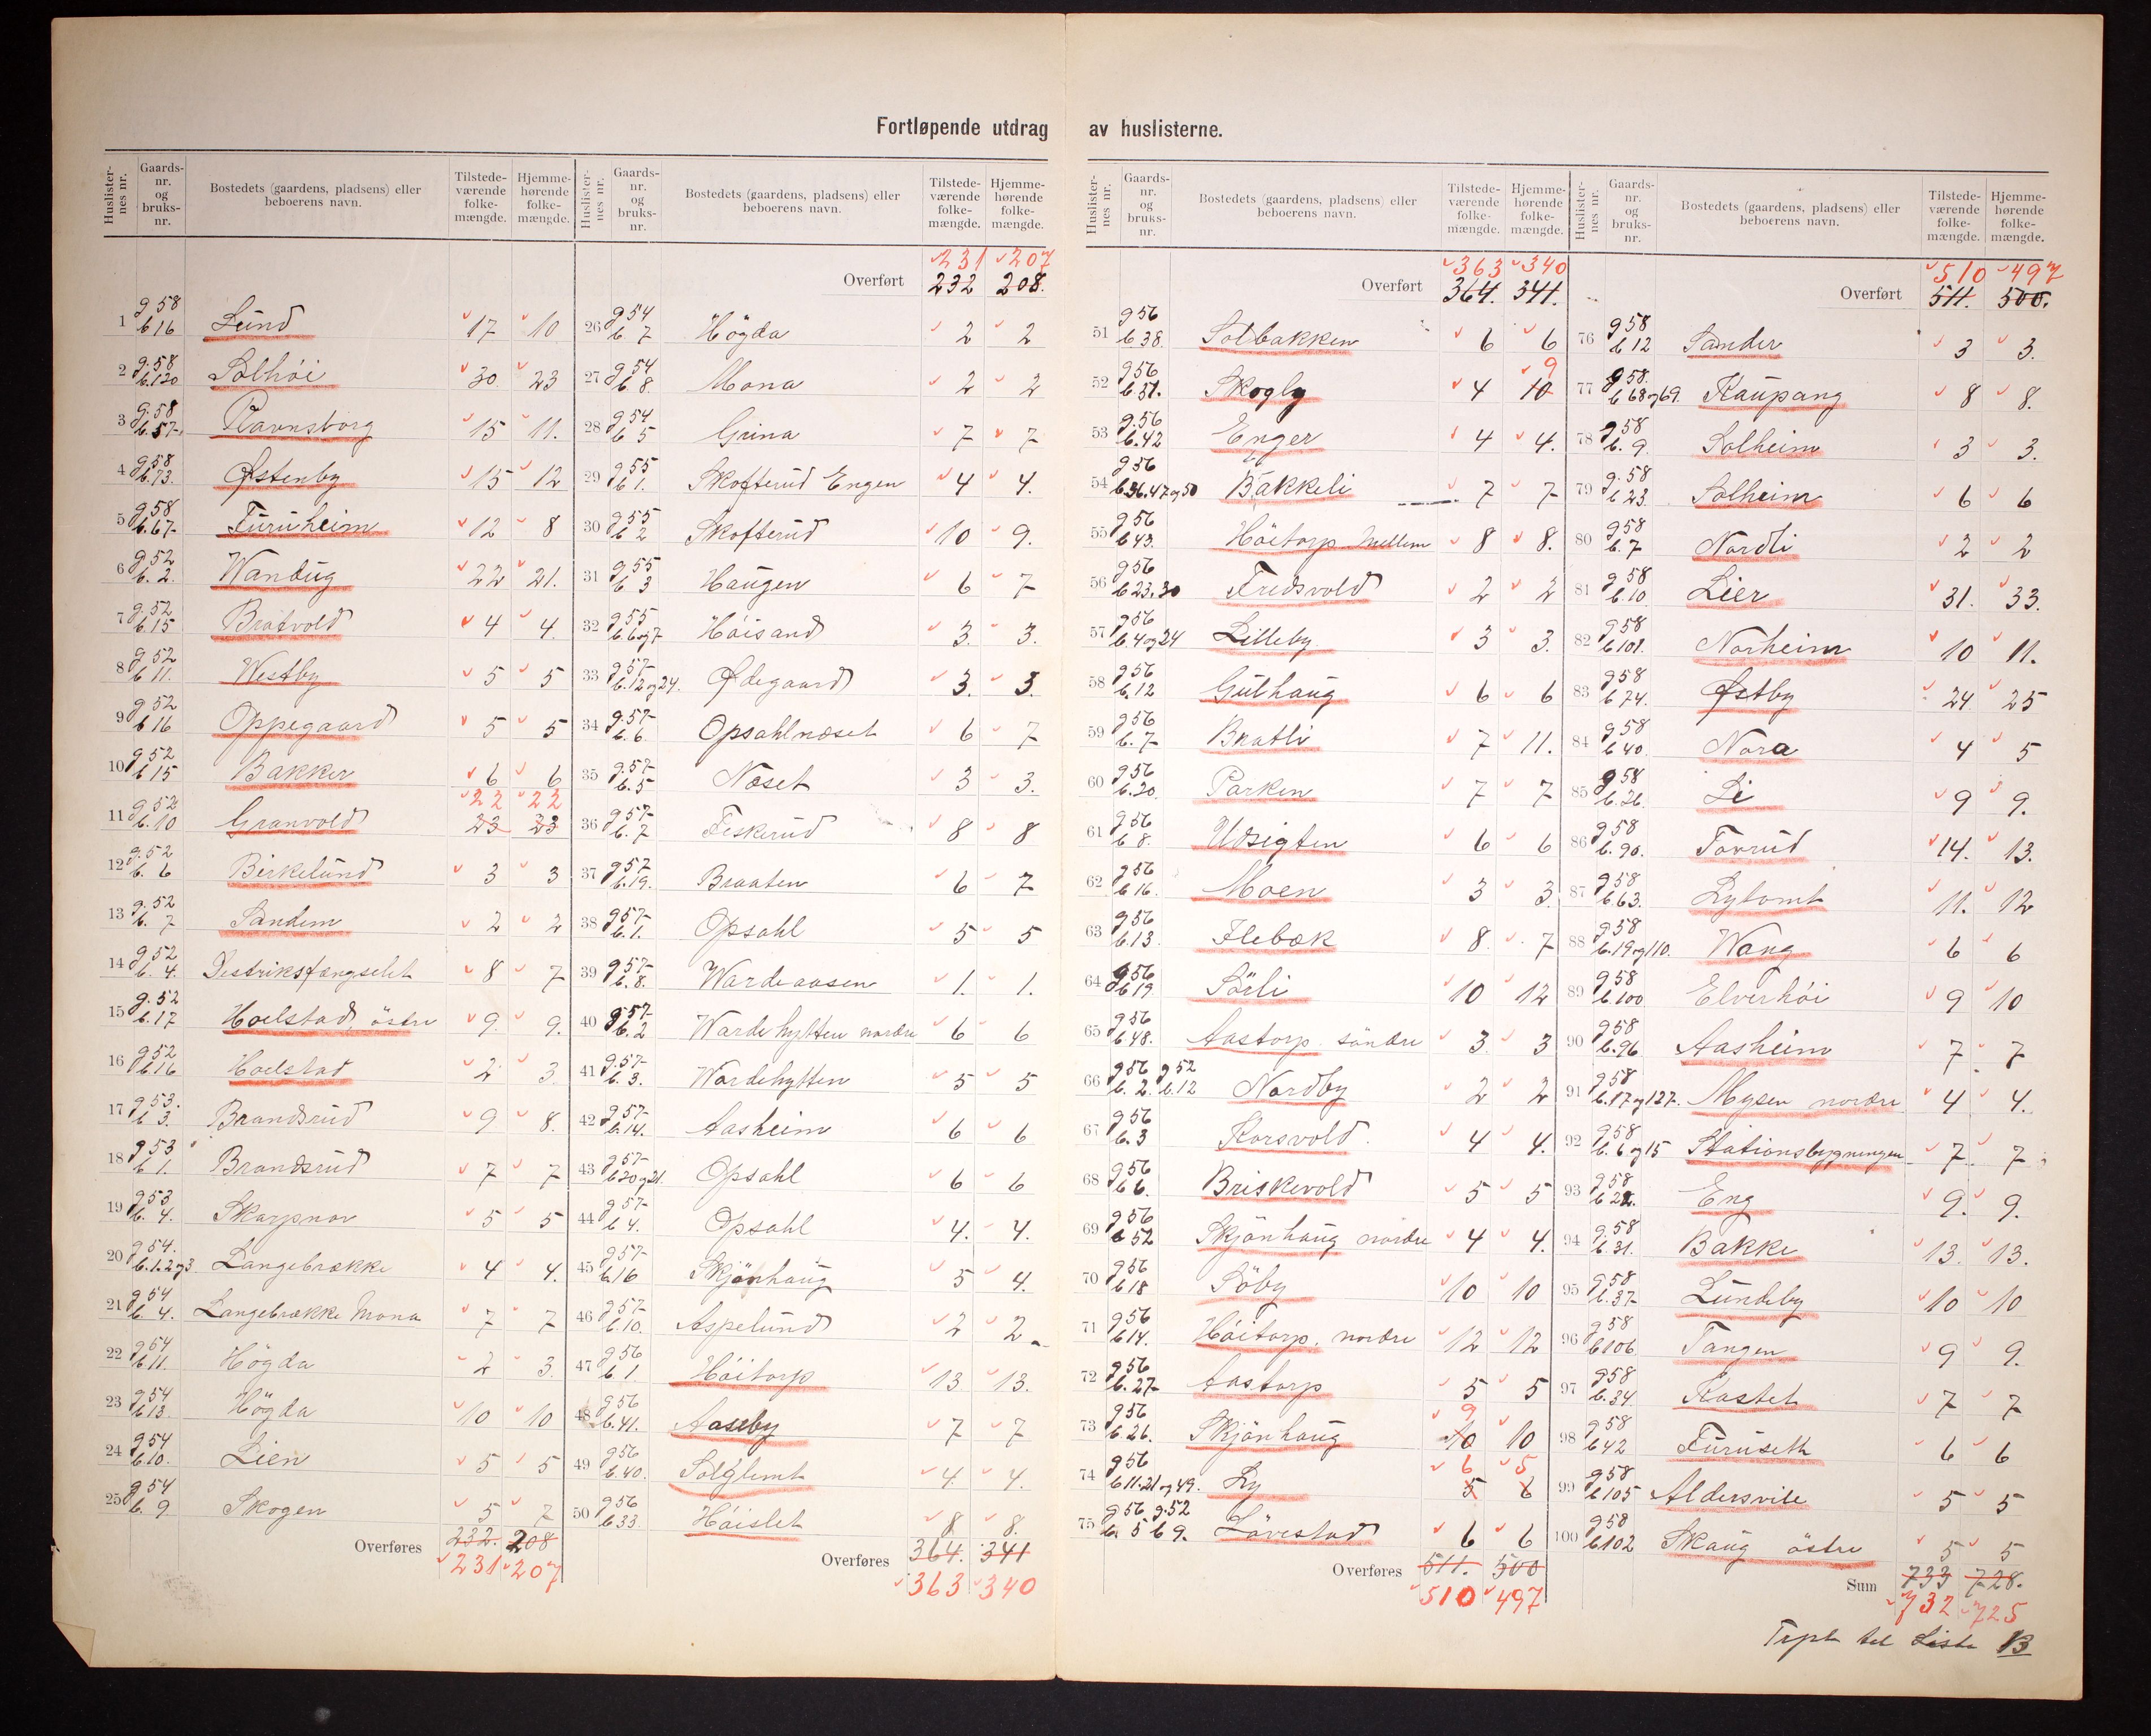 Fortløpende utdrag av huslisterne.
Huslisternes nr. Gaards-nr. og bruks-nr. Bostedets (gaardens, pladsens) eller beboerens navn. Tilstedeværende folkemængde. Hjemmehørende folkemængde.
1 g 58 b 16 Lund 17 10
2 g. 58 b. 120 Solhöi 30 23
3 g. 58 b. 57 Ravnsborg 15 11.
4 g. 58 b. 73. Østenby 15 12
5 g 58 b. 67 Furuheim 12 8
6 g 52 b. 2. Wandug 22 21.
7 g. 52 b. 15 Bratvold 4 4.
8 g 52 b 11. Westby 5 5
9 g 52 b 16 Oppegaard 5 5
10 g 52 b 15 Bakker 6 6
22 22
11 g 52 b. 10 Granvold 23 23
12 g. 52 b. 6 Birkelund 3 3
13 g. 52 b. 7 Sandem 2 2
14 g 52 b. 4. Destriksfængselet 8 7
15 g. 52 b. 17 Hoelstad östre 9. 9.
16 g 52 b 16 Hoelstad 2 3
17 g 53. b 3. Brandsrud 9 8.
18 g 53 b 1. Brandsrud 7 7
19 g 53 b. 4. Skarpnor 5 5
20 g 54. b. 1. 2 og 3 Langebrække 4 4.
21 g 54 b. 4. Langebrække Mona 7 7
22 g 54 b 11. Högda 2 3.
23 g 54 b 13. Högda 10 10
24 g 54 b 10. Lien 5 5
25 g 54 b. 9 Skogen 5 7
Overføres 232. 208
231 207
Huslisternes nr. Gaards-nr. og bruks-nr. Bostedets (gaardens, pladsens) eller beboerens navn. Tilstedeværende folkemængde. Hjemmehørende folkemængde.
231 207
Overført 232 208.
26 g 54 b. 7 Högda 2 2
27 g 54 b. 8. Mona 2 2
28 g 54 b 5 Grina 7 7
29 g 55 b 1. Skofterud Engen 4 4.
30 g 55 b 2 Skofterud 10 9.
31 g 55 b 3 Haugen 6 7
32 g 55 b. 6 og 7 Höisand 3. 3.
33 g 57 b. 12 og 24. Ødegaard 3. 3.
34 g. 57 b. 6. Opsahlnæset 6 7
35 g. 57 b. 5 Næset 3 3.
36 g 57 b. 7 Feskerud 8 8
37 g 57 b. 19. Braaten 6 7
38 g 57 b. 1. Opsahl 5 5
39 g 57 b. 8. Wardeaasen 1. 1.
40 g 57 b. 2 Warde hytten nordre 6 6
41 g. 57 b. 3. Wardehytten 5 5
42 g 57 b. 14. Aasheim 6 6
43 g 57 b 20 og 21. Opsahl 6 6
44 g 57 b 4. Opsahl 4. 4.
45 g 57 b. 16 Skjönhaug 5 4.
46 g 57 b. 10. Aspelund 2 2
47 g 56 b 1. Höitorp 13 13.
48 g 56 b. 41. Aaseby 7 7
49 g 56 b. 40. Solglemt 4. 4.
50 g 56 b 33. Höislet 8 8.
Overføres 364. 341
363 340
Huslisternes nr. Gaards-nr. og bruks-nr. Bostedets (gaardens, pladsens) eller beboerens navn. Tilstedeværende folkemængde. Hjemmehørende folkemængde.
363 340
Overført 364. 341.
51 g 56 b 38. Solbakken 6 6
9
52 g 56 b. 51. Skogly 4 10
53 g. 56 b. 42 Enger 4 4.
54 g 56 b. 36. 47 og 50 Bakkeli 7 7
55 g 56 b 43. Höitorp mellem 8 8.
56 g 56 b 23. 30 Fredsvold 2 2
57 g 56 b. 4 og 24 Lilleby 3 3.
58 g 56 b. 12 Gulhaug 6 6
59 g 56 b. 7 Bratli 7 11.
60 g 56 b. 20. Parken 7 7
61 g 56 b 8. Udsigten 6 6
62 g 56 b 16. Moen 3 3
63 g 56 b. 13. Flebæk 8. 7
64 g 56 b 19 Sörli 10 12
65 g 56 b. 48. Aastorp söndre 3. 3
66 g 56 g 52 b. 2. b. 12 Nordby 2 2
67 g 56 b. 3 Korsvold. 4 4.
68 g 56 b 6. Briskevold 5 5
69 g 56 b 52 Skjönhaug nordre 4 4.
70 g 56 b 18 Söby 10 10
71 g 56 b 14. Höitorp, nordre 12 12
72 g 56 b. 27 Aastorp 5 5
9
73 g 56 b. 26. Skjönhaug 10 10
6 5
74 g 56 b 11. 21 og 49. Ly 5 6
75 g 56 g. 52 b. 5 b 9. Lövestad 6 6
Overføres 511. 500
510 497
Huslisternes nr. Gaards-nr. og bruks-nr. Bostedets (gaardens, pladsens) eller beboerens navn. Tilstedeværende folkemængde. Hjemmehørende folkemængde.
510 497
Overført 511. 500.
76 g 58 b 12 Sander 3 3.
77 g 58. b 68 og 69. Kaupang 8 8.
78 g 58 b. 9. Solheim 3 3.
79 g. 58 b 23. Solheim 6 6
80 g 58 b. 7 Nordli 2 2
81 g 58 b. 10 Lier 31. 33.
82 g 58 b 101. Norheim 10 11.
83 g 58 b 74. Østby 24 25
84 g 58 b 40. Nora 4 5
85 g 58 b. 26. Li 9 9.
86 g 58 b. 90. Torrud 14. 13.
87 g 58 b. 63. Lytomt 11. 12
88 g 58 b. 19 og 110. Wang 6 6
89 g 58 b. 100 Elverhöi 9 10
90 g 58 b. 96 Aasheim 7 7
91 g 58 b. 17 og 127. Mysen nordre 4 4.
92 g 58 b. 6 og 15 Stationsbygningen 7 7
93 g 58 b 22. Eng 9. 9.
94 g. 58 b. 31. Bakke 13. 13.
95 g 58 b. 37 Lundeby 10 10
96 g 58 b 106 Tangen 9 9.
97 g 58 b. 34. Kastet 7 7
98 g 58 b 42 Furuseth 6 6
99 g 58 b 105 Aldersvile 5 5
100 g 58 b 102 Skaug östre 5 5
Sum 733 728.
732 725
Trpt til Liste B